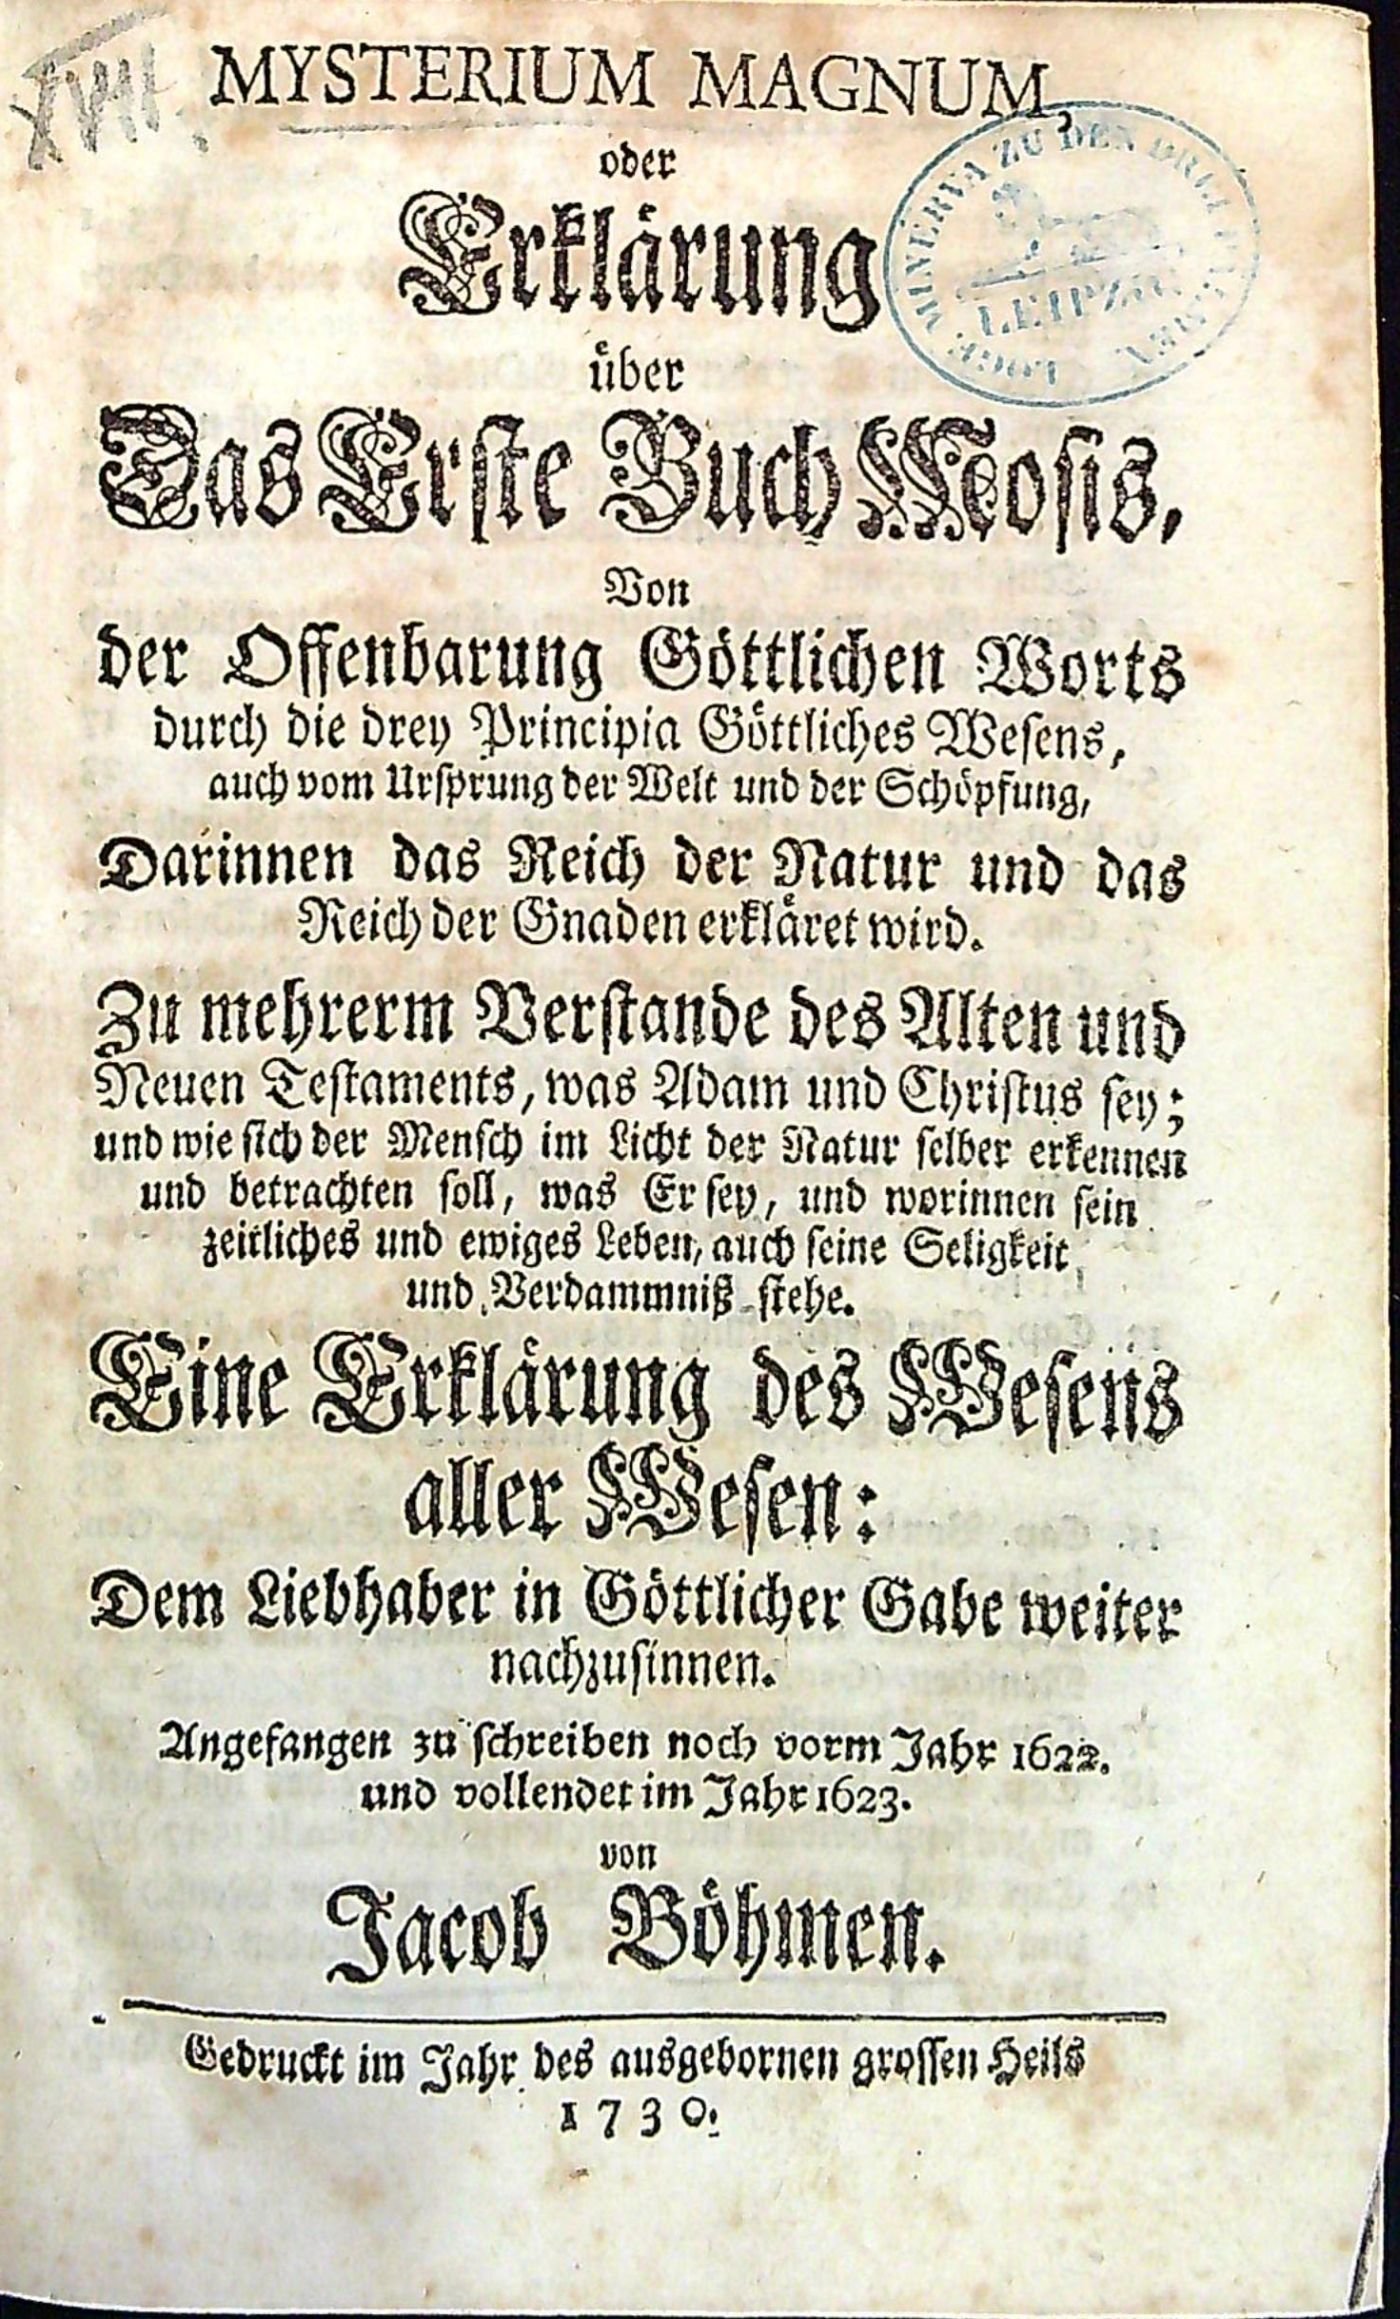 XVIII.
MYSTERIUM MAGNUM,
oder
Erklärung
über
Das Erste Buch Mosis,
Von
der Offenbarung Göttlichen Worts
durch die drey Principia Göttliches Wesens,
auch vom Ursprung der Welt und der Schöpfung,
Darinnen das Reich der Natur und das
Reich der Gnaden erkläret wird.
Zu mehrerm Verstande des Alten und
Neuen Testaments, was Adam und Christus sey;
und wie sich der Mensch im Licht der Natur selber erkennen
und betrachten soll, was Er sey, und worinnen sein
zeitliches und ewiges Leben, auch seine Seligkeit
und Verdammniß stehe.
Eine Erklärung des Wesens
aller Wesen:
Dem Liebhaber in Göttlicher Gabe weiter
nachzusinnen.
Angefangen zu schreiben noch vorm Jahr 1622.
und vollendet im Jahr 1623.
von
Jacob Böhmen.
Gedruckt im Jahr des ausgebornen grossen Heils
1730.
LOGE MINERVA ZU DEN DREI PALMEN
LEIPZIG